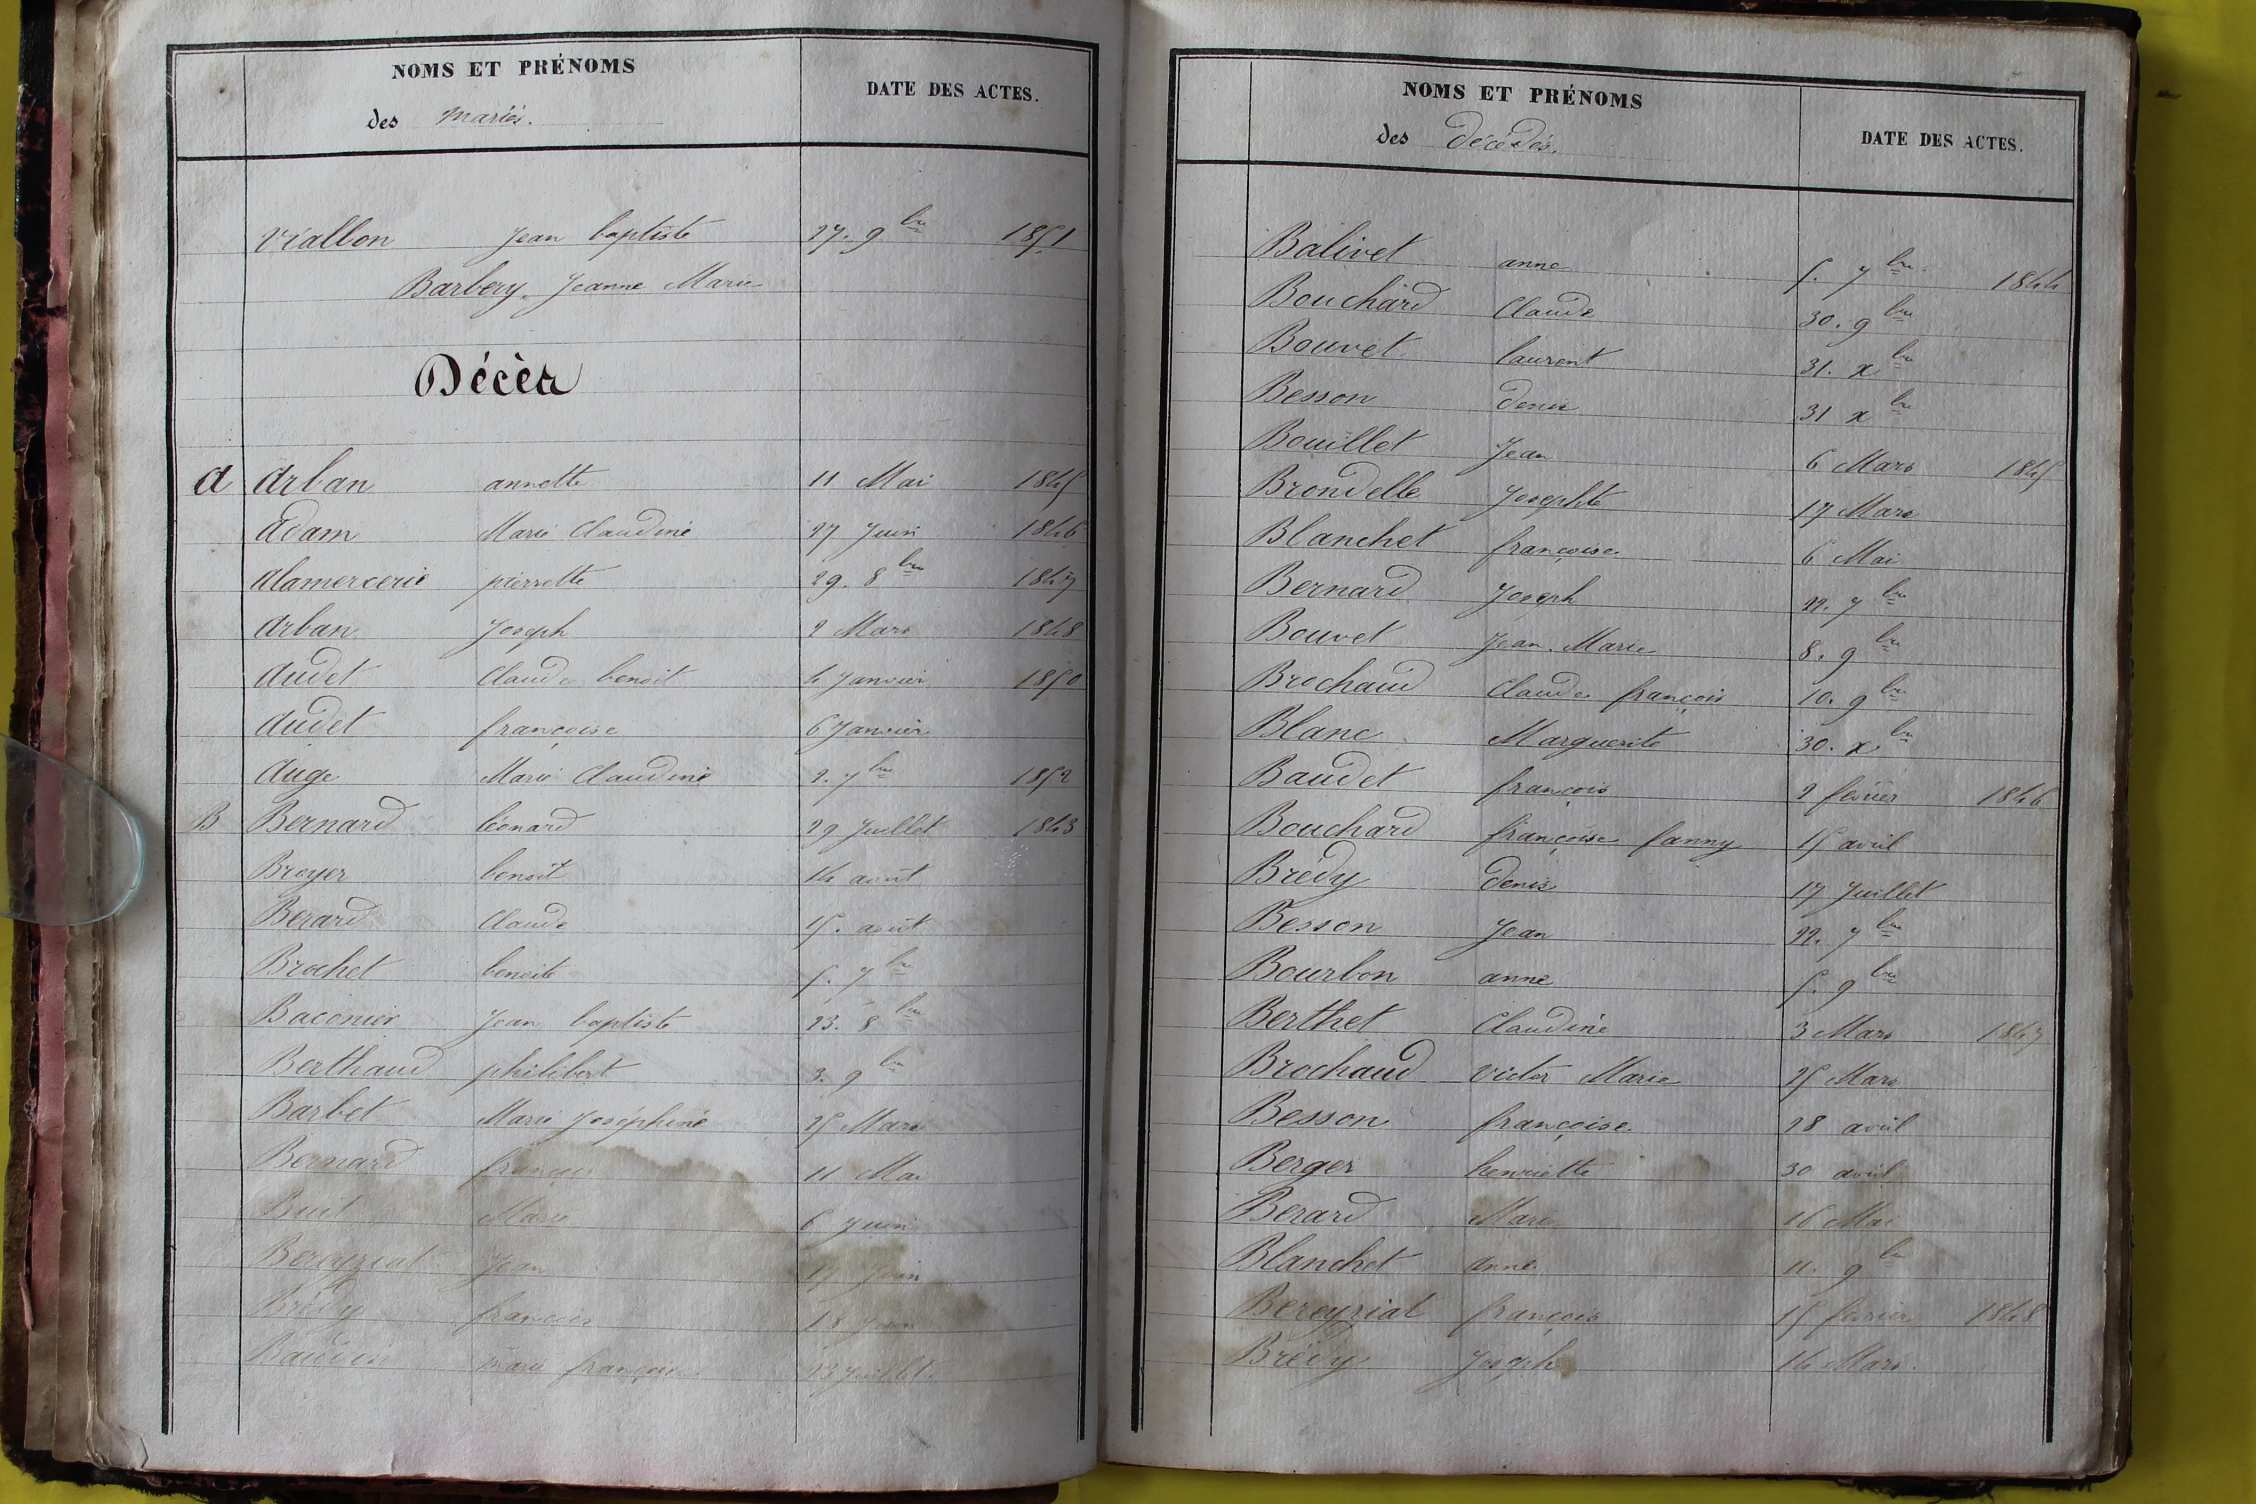 NOMS ET PRÉNOMS
des mariés.
DATE DES ACTES.
Viallon Jean baptiste 27. 9bre 1851
Barbery Jeanne Marie
Décès
A Arban annette 11 Mai 1845
Adam Marie Claudine 27 Juin 1846
Alamercerie pierrette 29. 8bre 1847
Arban Joseph 2 Mars 1848
Audet Claude benoit 4 Janvier 1850
Audet françoise 6 Janvier
Auge Marie Claudine 2. 7bre 1852
B Bernard léonard 29 Juillet 1843
Broyer benoit 14 août
Berard Claude 15. août
Brochet benoite 5. 7bre
Baconier Jean baptiste 23. 8bre
Berthaud philibert 3. 9bre
Barbet Marie Joséphine 25 Mars
Bernard françois 11 Mai
Buit Marie 6 Juin
Bereyziat Jean 17 Juin
Brédy françois 18 Juin
Baudin marie françoise 23 Juillet
NOMS ET PRÉNOMS
des Décédés.
DATE DES ACTES.
Balivet anne 5. 7bre 1844
Bouchard Claude 30. 9bre
Bouvet laurent 31. xbre
Besson denis 31 xbre
Bouillet Jean 6 Mars 1845
Brondelle Josephte 17 Mars
Blanchet françoise 6 Mai
Bernard Joseph 22. 7bre
Bouvet Jean Marie 8. 9bre
Brochaud Claude françois 10. 9bre
Blanc Marguerite 30. xbre
Baudet françois 2 février 1846
Bouchard françoise fanny 15 avril
Brédy denis 17 Juillet
Besson Jean 22. 7bre
Bourbon anne 5. 9bre
Berthet Claudine 3 Mars 1847
Brochaud victor Marie 25 Mars
Besson françoise 28 avril
Berger henriette 30 avril
Berard Marie 16 Mai
Blanchet anne 11. 9bre
Bereyziat françois 15 février 1848
Brédy Joseph 14 Mars.